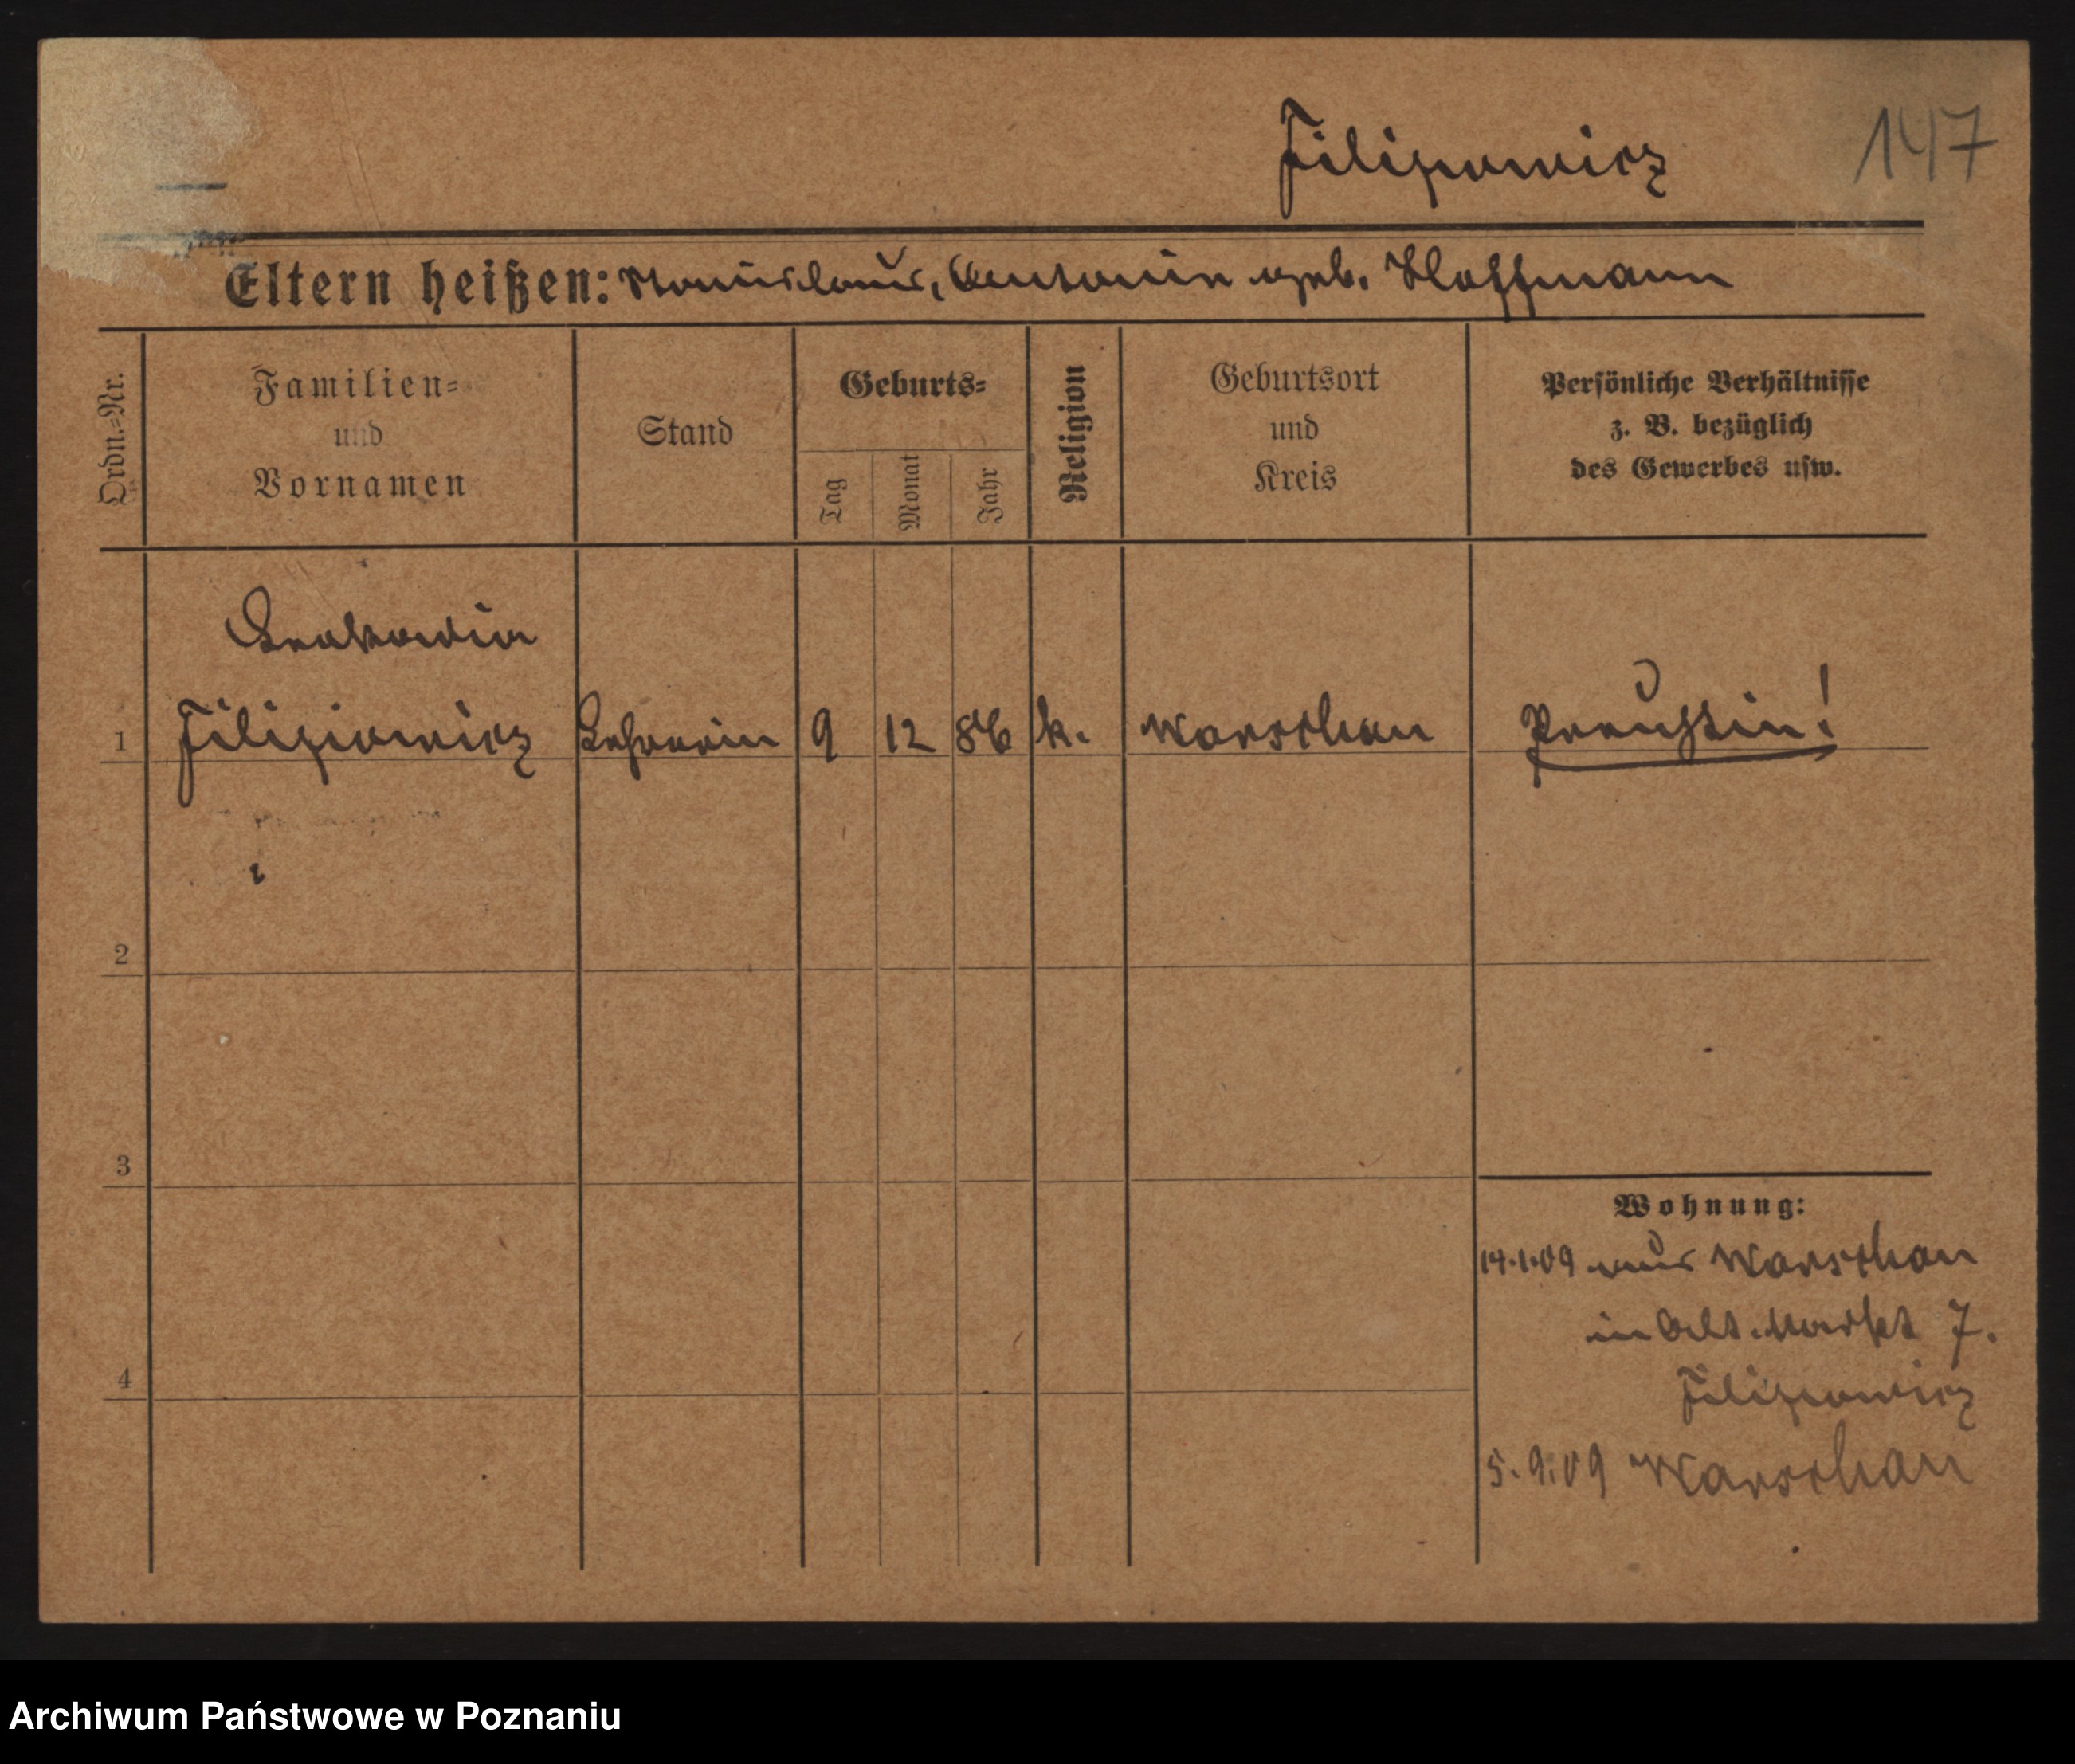 Filipowicz 147
Eltern heißen: Stanislaus, Antonie geb. Hoffmann
Ordn.=Nr.
Familien=
und
Vornamen
Stand
Geburts=
Tag
Monat
Jahr
Religion
Geburtsort
und
Kreis
Persönliche Verhältnisse
z. B. bezüglich
des Gewerbes usw.
Leokadia
1 Filipiowicz Lehrerin 9 12 86 k. Warschau Preußin!
2
3
Wohnung:
14.1.09 aus Warschau
in Alt. Markt 7.
4
Filipowicz
5.9.09 Warschau
Archiwum Państwowe w Poznaniu